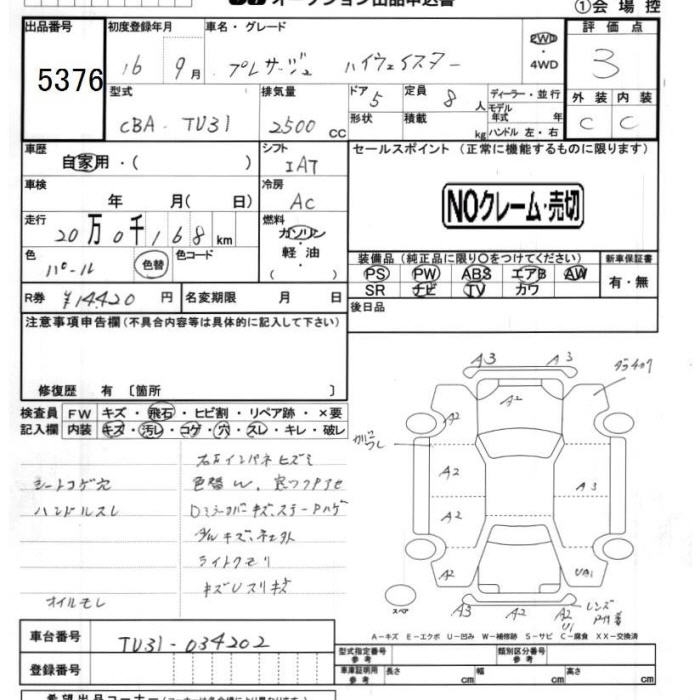 オークション出品申込書
①会場控
出品番号 初度登録年月 車名・グレード 2WD 評価点
5376 16 9月 プレサージュ ハイウェイスター ・ 3
4WD
型式 排気量 ドア 5 定員 8人 ディーラー・並行 外装 内装
モデル年式 年
CBA-TU31 2500cc 形状 積載 kg ハンドル 左・右 C C
車歴 シフト セールスポイント (正常に機能するものに限ります)
自家用・( ) IAT
車検 冷房
年 月( 日) AC NOクレーム・売切
走行 燃料
20万0千168km ガソリン
・
色 色替 色コード 軽油 装備品 (純正品に限り○をつけてください) 新車保証書
パール ( ) PS PW ABS エアB AW 有・無
R券 ¥14420円 名変期限 月 日 SR ナビ TV カワ
後日品
注意事項申告欄 (不具合内容等は具体的に記入して下さい)
修復歴 有 〔箇所 〕
検査員 FW キズ・飛石・ヒビ割・リペア跡・×要
記入欄 内装 キズ・汚レ・コゲ・穴・スレ・キレ・破レ
右左インパネヒズミ
シートコゲ穴
ハンドルスレ
ライトクモリ
オイルモレ
A3 A3
A2 A2
A2 A3
A2
A2 UA1
A3 A2 A2 レンズ
U1
スペア
A-キズ E-エクボ U-凹み W-補修跡 S-サビ C-腐食 XX-交換済
車台番号 TU31-034202
登録番号
型式指定番号 参考 類別区分番号 参考
車庫証明用 参考 長さ 幅 高さ
cm cm cm
希望出品コーナー